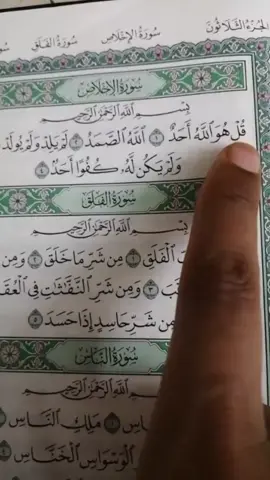 الجزء الثلاثون سورة الإخلاص سورة الفلق
سُورَةُ الإِخْلَاصِ
بِسْمِ ٱللَّهِ ٱلرَّحْمَٰنِ ٱلرَّحِيمِ
قُلْ هُوَ ٱللَّهُ أَحَدٌ ١ ٱللَّهُ ٱلصَّمَدُ ٢ لَمْ يَلِدْ وَلَمْ يُولَدْ
وَلَمْ يَكُن لَّهُۥ كُفُوًا أَحَدٌۢ ٤
سُورَةُ الفَلَقِ
بِسْمِ ٱللَّهِ ٱلرَّحْمَٰنِ ٱلرَّحِيمِ
ٱلْفَلَقِ ١ مِن شَرِّ مَا خَلَقَ ٢ وَمِن
٣ وَمِن شَرِّ ٱلنَّفَّٰثَٰتِ فِى ٱلْعُقَدِ
مِن شَرِّ حَاسِدٍ إِذَا حَسَدَ ٥
سُورَةُ النَّاسِ
بِسْمِ ٱللَّهِ ٱلرَّحْمَٰنِ ٱلرَّحِيمِ
١ مَلِكِ ٱلنَّاسِ
ٱلْوَسْوَاسِ ٱلْخَنَّاسِ ٤